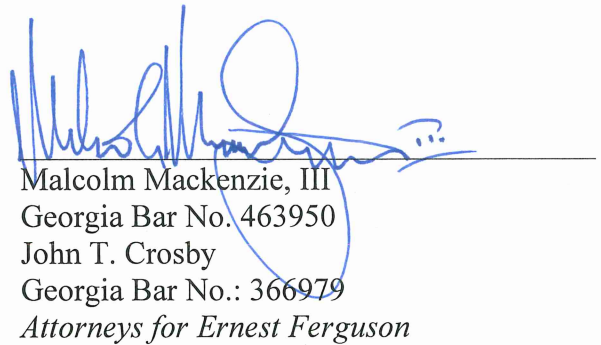 Malcolm Mackenzie, III
Georgia Bar No. 463950
John T. Crosby
Georgia Bar No.: 366979
Attorneys for Ernest Ferguson